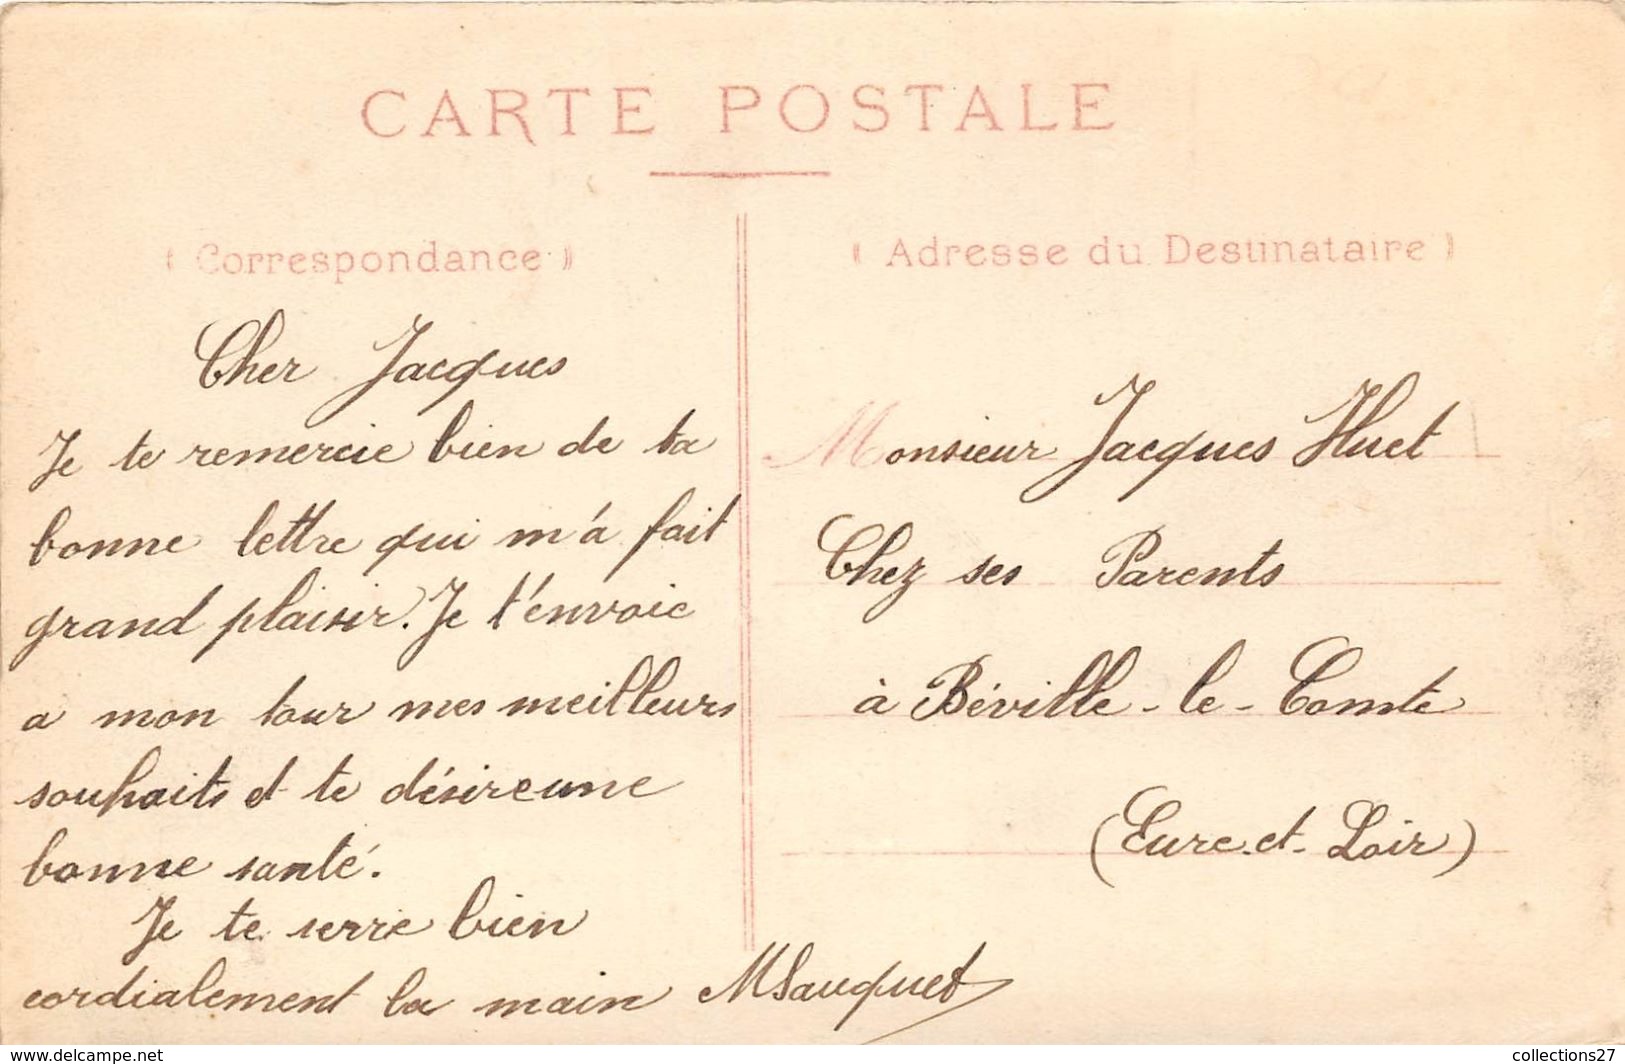 CARTE POSTALE
( Correspondance )
Cher Jacques
Je te remercie bien de ta
bonne lettre qui m'a fait
grand plaisir. Je t'envoie
a mon tour mes meilleurs
souhaits et te désire une
bonne santé.
Je te serre bien
cordialement la main MSauquet
( Adresse du Destinataire )
Monsieur Jacques Huet
Chez ses Parents
à Béville-le-Comte
(Eure-et-Loir)
www.delcampe.net
collections27